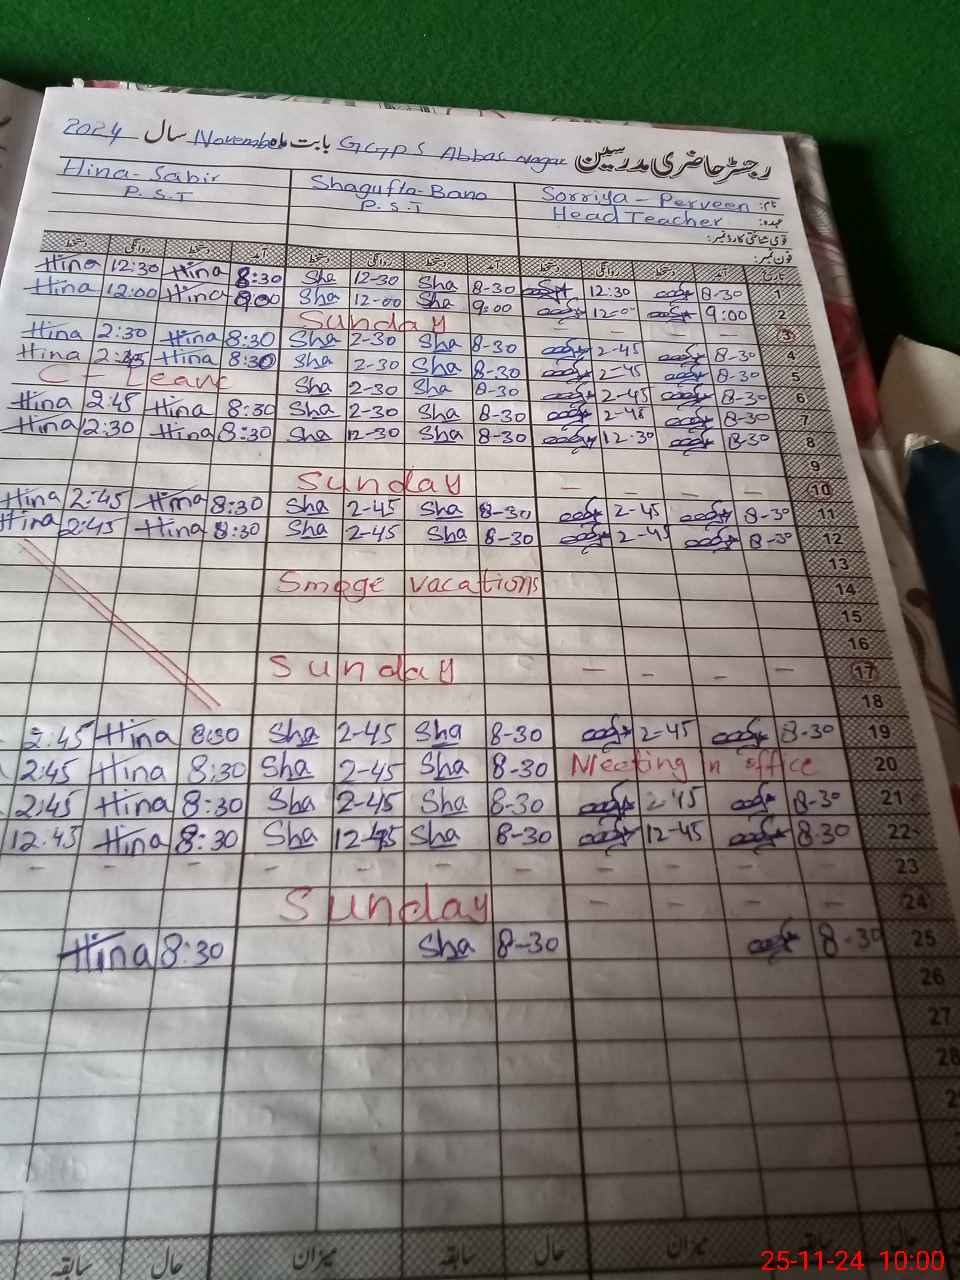 رجسٹر حاضری مدرسین GGPS Abbas Nagar بابت ماہ November سال 2024
Hina-Sabir Shagufta-Bano Sorriya-Perveen نام:
P.S.T P.S.T Head Teacher عہدہ:
قومی شناختی کارڈ نمبر:
فون نمبر:
دستخط روانگی دستخط آمد دستخط روانگی دستخط آمد دستخط روانگی دستخط آمد تاریخ
Hina 12:30 Hina 8:30 Sha 12-30 Sha 8-30 12:30 8-30 1
Hina 12:00 Hina 9:00 Sha 12-00 Sha 9:00 12-00 9:00 2
Sunday - - - - 3
Hina 2:30 Hina 8:30 Sha 2-30 Sha 8-30 2-45 8-30 4
Hina 2:45 Hina 8:30 Sha 2-30 Sha 8-30 2-45 8-30 5
C-Leave Sha 2-30 Sha 8-30 2-45 8-30 6
Hina 2:45 Hina 8:30 Sha 2-30 Sha 8-30 2-45 8-30 7
Hina 12:30 Hina 8:30 Sha 12-30 Sha 8-30 12:30 8-30 8
9
Sunday - - - - 10
Hina 2:45 Hina 8:30 Sha 2-45 Sha 8-30 2-45 8-30 11
Hina 2:45 Hina 8:30 Sha 2-45 Sha 8-30 2-45 8-30 12
13
Smoge vacations 14
15
16
Sunday - - - - 17
18
2:45 Hina 8:30 Sha 2-45 Sha 8-30 2-45 8-30 19
2:45 Hina 8:30 Sha 2-45 Sha 8-30 Meeting in office 20
2:45 Hina 8:30 Sha 2-45 Sha 8-30 2-45 8-30 21
12:45 Hina 8:30 Sha 12-45 Sha 8-30 12-45 8-30 22
- - - - - - - - - - - - 23
Sunday - - - - 24
Hina 8:30 Sha 8-30 8-30 25
26
27
28
سابقہ حال میزان سابقہ حال میزان سابقہ حال
25-11-24 10:00